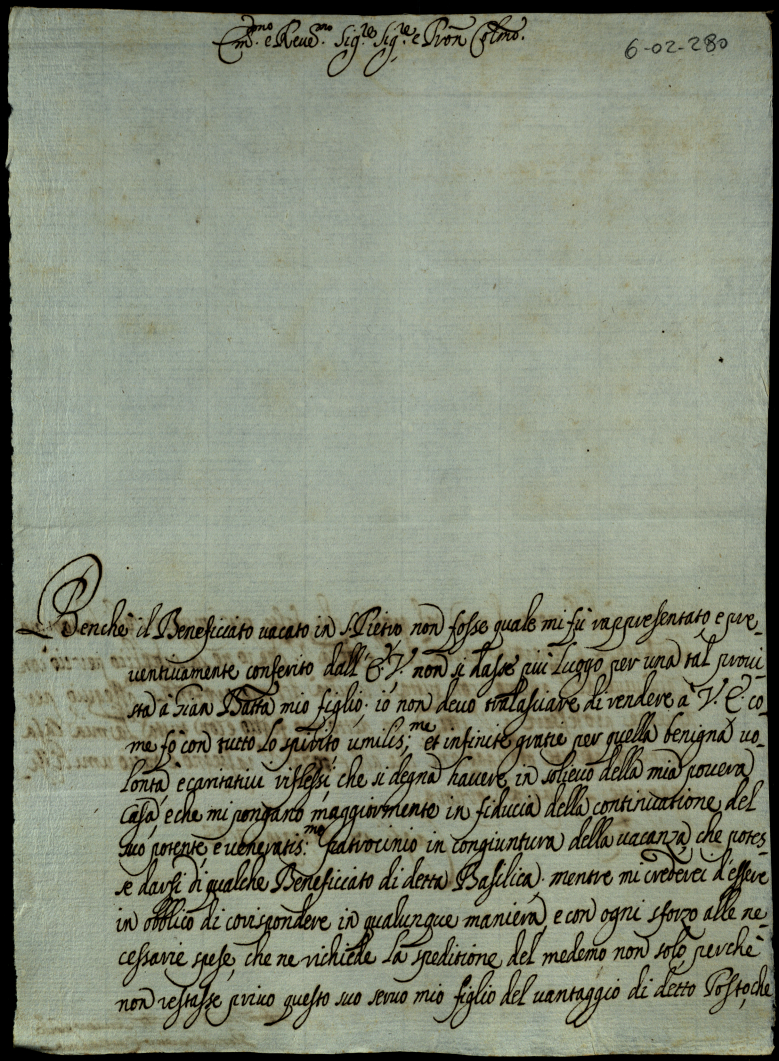 Em.mo e Reve.mo Sig.re Sig.re e Pron Col.mo
6-02-280
Benche il Beneficiato vacato in S. Pietro non fosse quale mi fù rappresentato e pre-
ventivamente conferito dall' E. V. non si dasse più luogo per una tal provi-
sta à Gian Batta mio figlio. io non devo tralasciare di rendere a V. E. co-
me fò con tutto lo spirito umilis.me et infinite gratie per quella benigna vo-
lontà e caritativi riflessi, che si degna havere in solievo della mia povera
Casa, e che mi pongano maggiormente in fiducia della continuatione del
suo potente, e veneratis.mo patrocinio in congiuntura della vacanza che potes-
se darsi di qualche Beneficiato di detta Basilica. mentre mi crederei d'essere
in obblico di corispondere in qualunque maniera, e con ogni sforzo alle ne-
cessarie spese, che ne richiede la speditione del medemo non solo perche
non restasse privo questo suo servo mio figlio del vantaggio di detto Posto, che